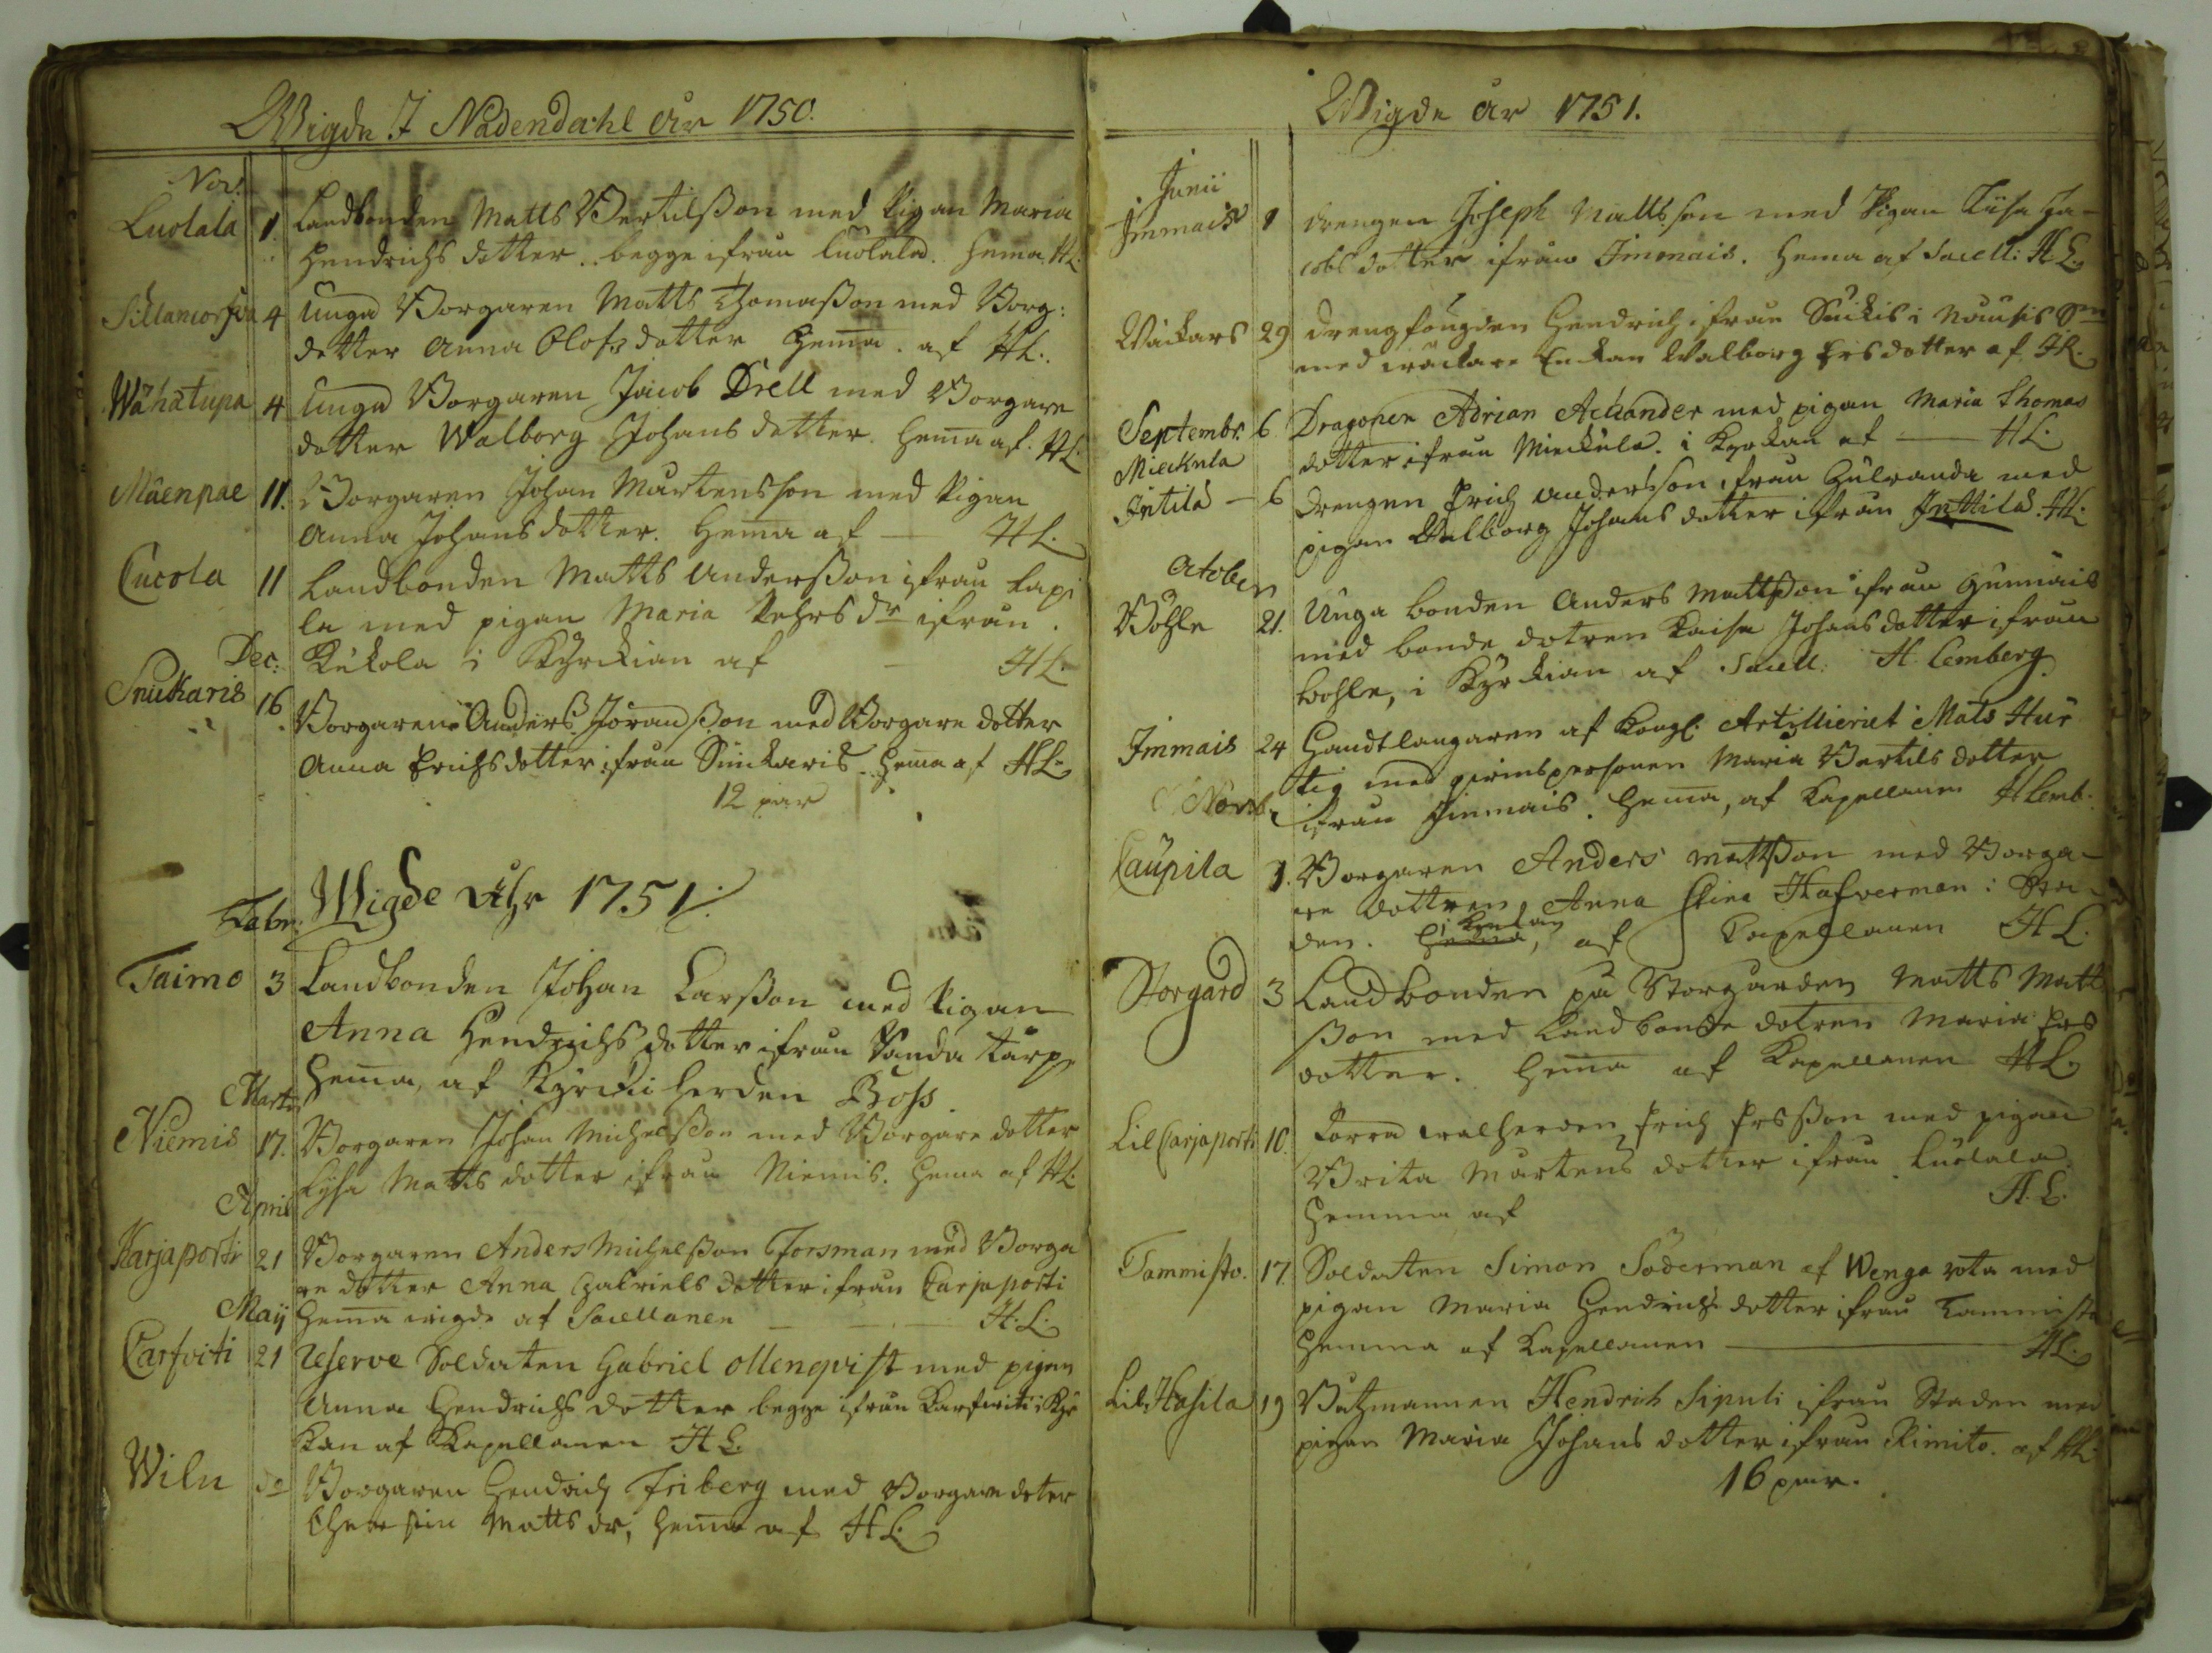 Wigde I Nådendahl åhr 1750.
Nov:
Luolala 1. Landbonden Matts Bertilsson med Pigan Maria
Hendrichs dotter. begge ifrån Luolala. Hema. HL.
4 Unga Borgaren Matts Thomasson med Borg:
dotter Anna Olofs dotter Hema. af HL.
Wähätupa 4 Unga Borgaren Jacob Drell med Borgare
dotter Walborg Johans dotter. Hema af. HL
Mäenpäe 11. Borgaren Johan Mårtensson med Pigan
Anna Johans dotter. Hema af — HL.
Cucola 11 Landbonden Matts Andersson ifrån Lapi
la med pigan Maria Pehrs dr ifrån
Dec: Kukola i Kyrckian af — HL
Snickaris 16 Borgaren Anders Joransson med Borgare dotter
Anna Erichs dotter ifrån Snickaris. Hema af HL.
12 par
Wigde Åhr 1751.
Febr:
Taimo 3 Landbonden Johan Larsson med Pigan
Anna Hendrichs dotter ifrån
Hema, af Kyrckie herden Boss.
Mart:
Niemis 17. Borgaren Johan Michelsson med Borgare dotter
Lisa Matts dotter ifrån Niemis. Hema af HL.
April
Karjaporti 21 Borgaren Anders Michelsson Forsman med Borga
re dotter Anna Gabriels dotter ifrån Carjaporti
Maij Hema wigde af Sacellanen — H.L.
Carfviti 21 Reserve Soldaten Gabriel Ollenqvist med pigan
Anna Hendrichs dotter begge ifrån Karfwiti i Kyr
kan af Kapellanen HL.
Wilu do Borgaren Hendrich Friberg med Borgare doter
Matts dr, Hema af HL.
Wigde år 1751.
Junii
Immais 1 drengen Joseph Mattsson med Pigan Lisa Ja-
cobs dotter ifrån Immais. Hema af Sacell: HL.
Wäckars 29 drengfougden Hendrich ifrån i Nousis Sn
med Enckan Walborg Ersdotter af HL.
Septembr. 6 Dragonen Adrian Aclander med pigan Maria Thomas
Mieckula dotter ifrån Mieckula. i Kyrkan af — HL.
Intilä — 6 drengen Erich Andersson ifrån med
pigan Walborg Johans dotter ifrån Inttilä. HL.
October
Böhle 21. Unga bonden Anders Mattsson ifrån Gunnais
med bonde dotren Kaisa Johans dotter ifrån
Böhle, i Kyrckian af Sacell. H. Lemberg
Immais 24 Handtlangaren af Kongl. Artillieriet Mats Hur
tig med qwinspersonen Maria Bertils dotter
Novb. ifrån Immais. Hema, af Kapellanen HLemb.
Caupila 1. Borgaren Anders Mattsson med Borga-
re dottren Anna Elina Hafverman i Sta-
den. i Kyrkan, af Capellanen HL.
Storgård 3 Landbonden på Storgården Matts Matt
sson med Landbonde dotren Maria Ers
dotter. Hema af Kapellanen HL.
Lil Carjaporti 10. Erich Ersson med pigan
Brita Mårtens dotter ifrån Luolala.
Hemma af H.L.
Tammisto. 17. Soldaten Simon Söderman af Wenga rota med
pigan Maria Hendrichs dotter ifrån Tammisto
Hemma af Kapellanen — HL.
Lil Hasila 19 Båtzmannen Hendrich Sipuli ifrån Staden med
pigan Maria Johans dotter ifrån Rimito. af HL.
16 par.